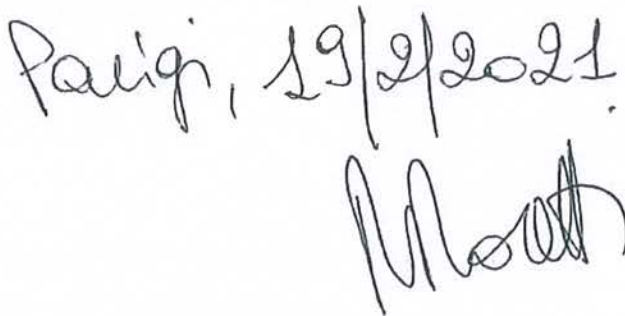 Parigi, 19/2/2021.